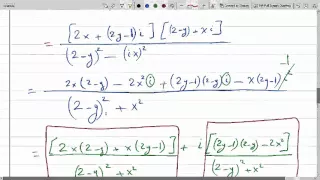 = [2x + (2y-1)i] [(2-y) + xi] / (2-y)² - (ix)²
= 2x(2-y) - 2x² i + (2y-1)(2-y) i - x(2y-1) / (2-y)² + x²
= [2x(2-y) + x(2y-1)] / (2-y)² + x² + i [(2y-1)(2-y) - 2x²] / (2-y)² + x²